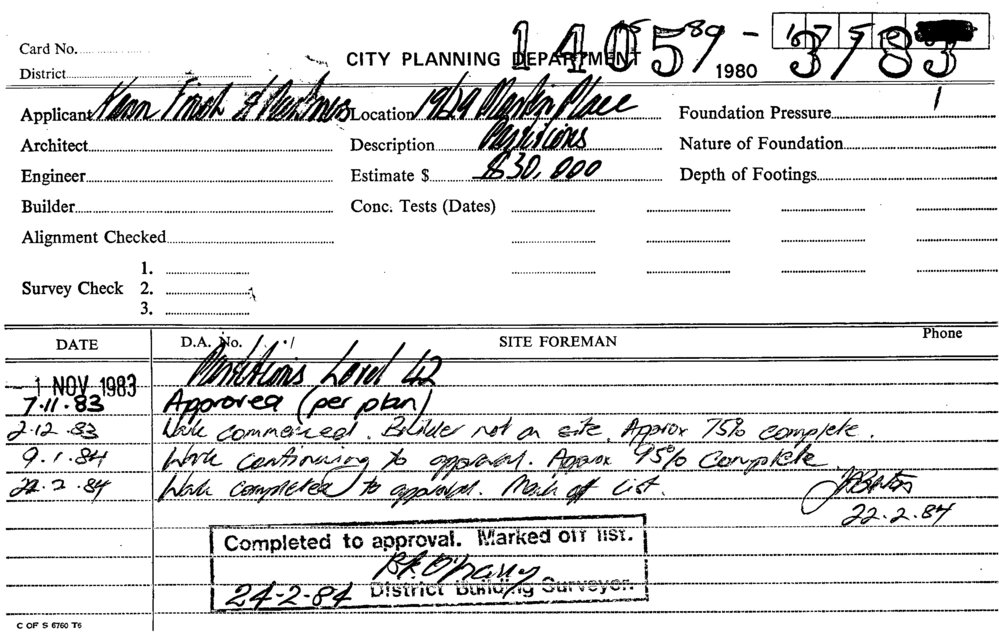 Card No.
CITY PLANNING DEPARTMENT
District
1980
Applicant Kann Finch & Partners Location 1969 Martin Place Foundation Pressure
Architect Description Partitions Nature of Foundation
Engineer Estimate $ $30,000 Depth of Footings
Builder Conc. Tests (Dates)
Alignment Checked
1.
Survey Check 2.
3.
DATE D.A. No. SITE FOREMAN Phone
Partitions Level 42
- 1 NOV 1983
7.11.83 Approved (per plan)
2.12.83 Work commenced. Builder not on site. Approx 75% complete.
9.1.84 Work continuing to approval. Approx 95% Complete
22.2.84 Work completed to approval. Mark off List.
22.2.84
Completed to approval. Marked off list.
24-2-84 District Building Surveyor.
C OF S 6760 T6